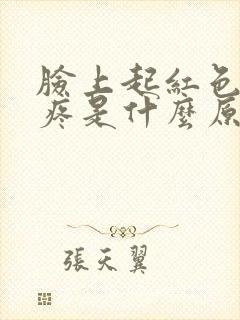 臉上起紅色
疼是什麼原
張天翼